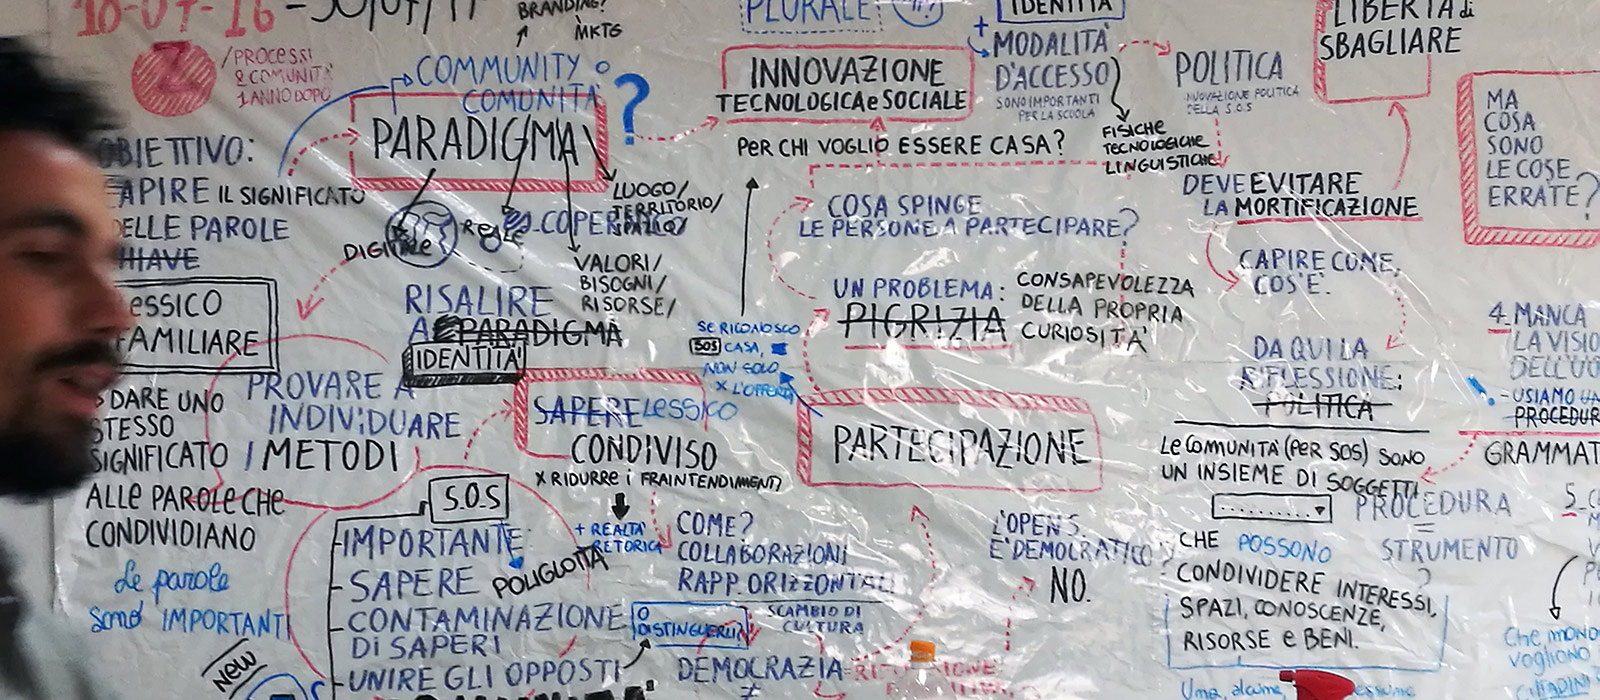 10-07-16 - 30/07/17
/PROCESSI
2 COMUNITÀ
1 ANNO DOPO
BRANDING?
MKTG
COMMUNITY O
COMUNITÀ
?
PARADIGMA
OBIETTIVO:
CAPIRE IL SIGNIFICATO
DELLE PAROLE
CHIAVE
LESSICO
FAMILIARE
DARE UNO
STESSO
SIGNIFICATO
ALLE PAROLE CHE
CONDIVIDIANO
Le parole
sono IMPORTANTI
NEW
DIGITALE
REALE
COPER
LUOGO/
TERRITORIO/
SPAZIO/
VALORI/
BISOGNI/
RISORSE/
RISALIRE
A PARADIGMA
IDENTITÀ
PROVARE A
INDIVIDUARE
I METODI
SAPERE LESSICO
CONDIVISO
X RIDURRE i FRAINTENDIMENTI
+ REALTÀ
RETORICA
S.O.S
-IMPORTANTE:
-SAPERE POLIGLOTTA
-CONTAMINAZIONE
DI SAPERI
-UNIRE GLI OPPOSTI
O
DISTINGUERLI?
COME?
COLLABORAZIONI
RAPP. ORIZZONTALI
SCAMBIO DI
CULTURA
DEMOCRAZIA
≠
PLURALE
INNOVAZIONE
TECNOLOGICA e SOCIALE
PER CHI VOGLIO ESSERE CASA?
COSA SPINGE
LE PERSONE A PARTECIPARE?
UN PROBLEMA:
PIGRIZIA
CONSAPEVOLEZZA
DELLA PROPRIA
CURIOSITÀ
SE RICONOSCO
SOS CASA,
NON SOLO
X L'OFFERTA
PARTECIPAZIONE
L'OPEN S.
È DEMOCRATICO?
NO.
IDENTITÀ
+ MODALITÀ
D'ACCESSO
SONO IMPORTANTI
PER LA SCUOLA
FISICHE
TECNOLOGICHE
LINGUISTICHE
POLITICA
INNOVAZIONE POLITICA
DELLA S.O.S
LIBERTÀ di
SBAGLIARE
DEVE EVITARE
LA MORTIFICAZIONE
CAPIRE COME,
COS'È.
DA QUI LA
RIFLESSIONE:
POLITICA
LE COMUNITÀ (PER SOS) SONO
UN INSIEME DI SOGGETTI
CHE POSSONO
CONDIVIDERE INTERESSI,
SPAZI, CONOSCENZE,
RISORSE e BENI.
PROCEDURA
=
STRUMENTO
?
MA
COSA
SONO
LE COSE
ERRATE?
4. MANCA
LA VISIO
DELL'UO
- USIAMO UN
PROCEDUR
GRAMMAT
5.
Che MONDO
vogliono